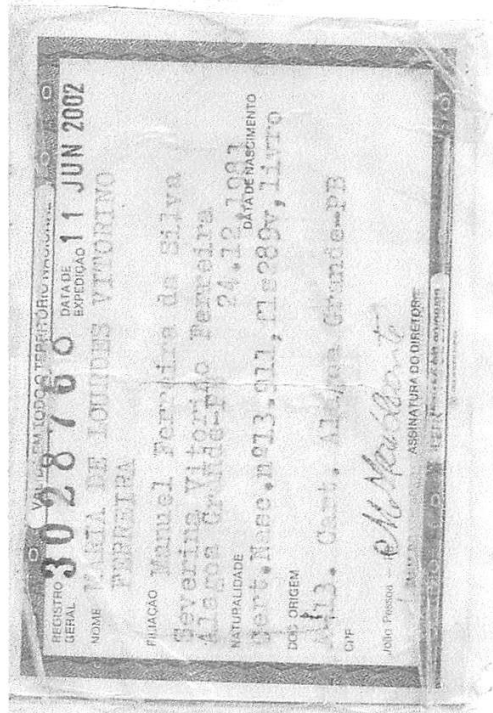 VÁLIDA EM TODO O TERRITÓRIO NACIONAL
REGISTRO GERAL 3028760 DATA DE EXPEDIÇÃO 11 JUN 2002
NOME MARIA DE LOURDES VITORINO
FERREIRA
FILIAÇÃO Manuel Ferreira da Silva
Severina Vitorino Ferreira
NATURALIDADE Alagoa Grande-PB 24.12.1981 DATA DE NASCIMENTO
DOC ORIGEM Cert.Nasc.nº13.911, fls289v, livro
A/13. Cart. Alagoa Grande-PB
CPF
João Pessoa
ASSINATURA DO DIRETOR